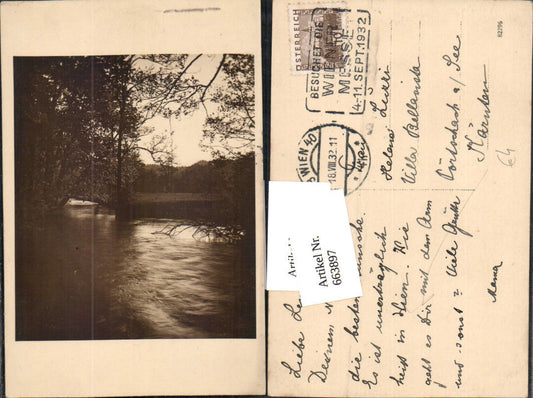 82/96
ÖSTERREICH
BESUCHET DIE
WIENER
MESSE
4.-11. SEPT. 1932
WIEN 40
18.VIII.32.11
Helene
Villa Bellavista
Pörtschach a/See
Kärnten
64
Artikel Nr.
663897
Liebe
Deinem
die besten
Es ist unerträglich
heiß in Wien. Wie
geht es Dir mit dem Arm
und sonst = Viele Grüße
Mama